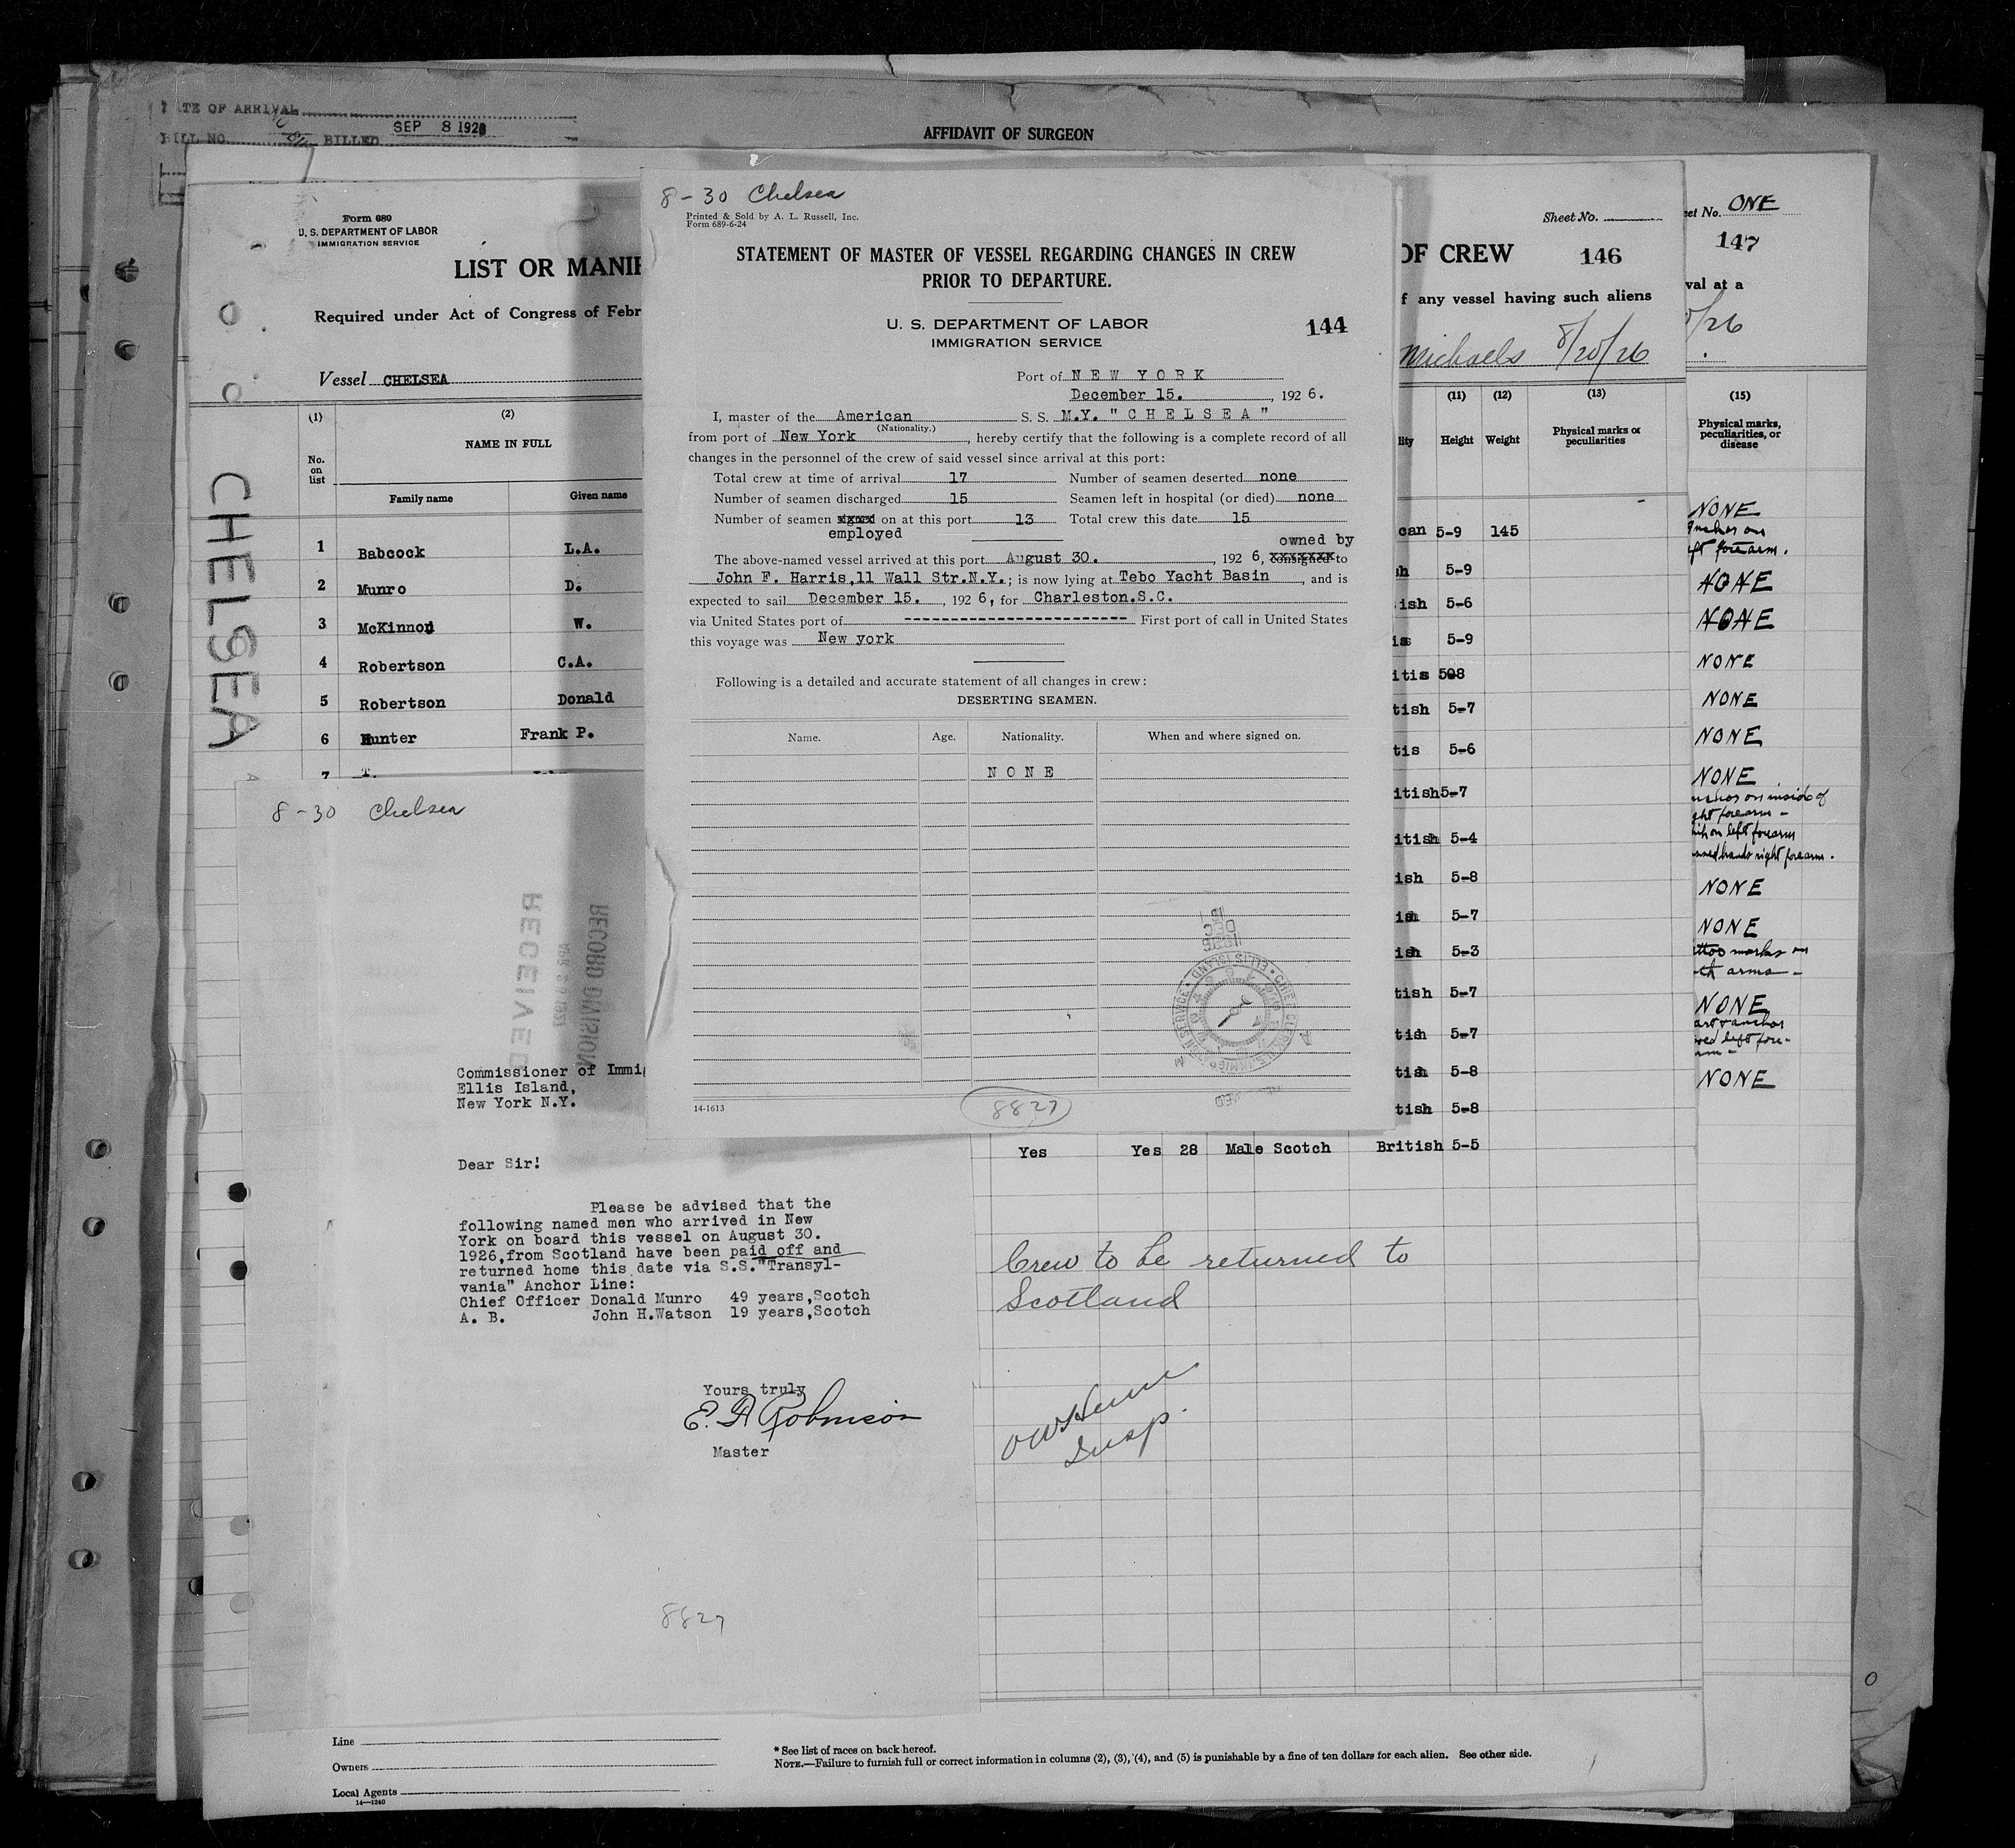 DATE OF ARRIVAL
BILL NO. BILLED SEP 8 1926
AFFIDAVIT OF SURGEON
Form 689
U. S. DEPARTMENT OF LABOR
IMMIGRATION SERVICE
LIST OR MANIF
Required under Act of Congress of Febr
Vessel CHELSEA
(1) (2)
NAME IN FULL
No. on list
Family name Given name
CHELSEA
1 Babcock L.A.
2 Munro D.
3 McKinnon W.
4 Robertson C.A.
5 Robertson Donald
6 Hunter Frank P.
7
8-30 Chelsea
Printed & Sold by A. L. Russell, Inc.
Form 689-6-24
STATEMENT OF MASTER OF VESSEL REGARDING CHANGES IN CREW
PRIOR TO DEPARTURE.
U. S. DEPARTMENT OF LABOR
IMMIGRATION SERVICE
144
Port of NEW YORK
December 15. , 192 6.
I, master of the American S. S. M.Y. "CHELSEA"
(Nationality.)
from port of New York , hereby certify that the following is a complete record of all
changes in the personnel of the crew of said vessel since arrival at this port:
Total crew at time of arrival 17 Number of seamen deserted none
Number of seamen discharged 15 Seamen left in hospital (or died) none
Number of seamen signed on at this port 13 Total crew this date 15
employed owned by
The above-named vessel arrived at this port August 30. , 192 6, consigned to
John F. Harris,11 Wall Str.N.Y.; is now lying at Tebo Yacht Basin , and is
expected to sail December 15. , 192 6, for Charleston.S.C.
via United States port of ------------------------ First port of call in United States
this voyage was New york
Following is a detailed and accurate statement of all changes in crew:
DESERTING SEAMEN.
Name. Age. Nationality. When and where signed on.
NONE
DEC
ELLIS ISLAND
14-1613
8827
Sheet No.
OF CREW 146
f any vessel having such aliens
Michaels 8/20/26
(11) (12) (13)
lity Height Weight Physical marks or peculiarities
can 5-9 145
sh 5-9
ish 5-6
is 5-9
itis 5-8
tish 5-7
tis 5-6
itish 5-7
itish 5-4
ish 5-8
ish 5-7
ish 5-3
tish 5-7
tish 5-7
tish 5-8
tish 5-8
Yes Yes 28 Male Scotch British 5-5
Crew to be returned to
Scotland
Insp.
eet No. ONE
147
val at a
/26
(15)
Physical marks,
peculiarities, or
disease
NONE
anchor on
ft forearm.
NONE
NONE
NONE
NONE
NONE
NONE
on inside of
ght forearm -
on left forearm
hands right forearm.
NONE
NONE
ttoo marks on
th arms -
NONE
art & anchor
left fore-
arm -
NONE
8-30 Chelsea
RECEIVED
RECORD DIVISION
Commissioner of Immi
Ellis Island,
New York N.Y.
Dear Sir!
Please be advised that the
following named men who arrived in New
York on board this vessel on August 30.
1926,from Scotland have been paid off and
returned home this date via S.S."Transyl-
vania" Anchor Line:
Chief Officer Donald Munro 49 years,Scotch
A. B. John H.Watson 19 years,Scotch
Yours truly
E. A. Robinson
Master
8827
Line
Owners
Local Agents
14-1240
* See list of races on back hereof.
NOTE.—Failure to furnish full or correct information in columns (2), (3), (4), and (5) is punishable by a fine of ten dollars for each alien. See other side.